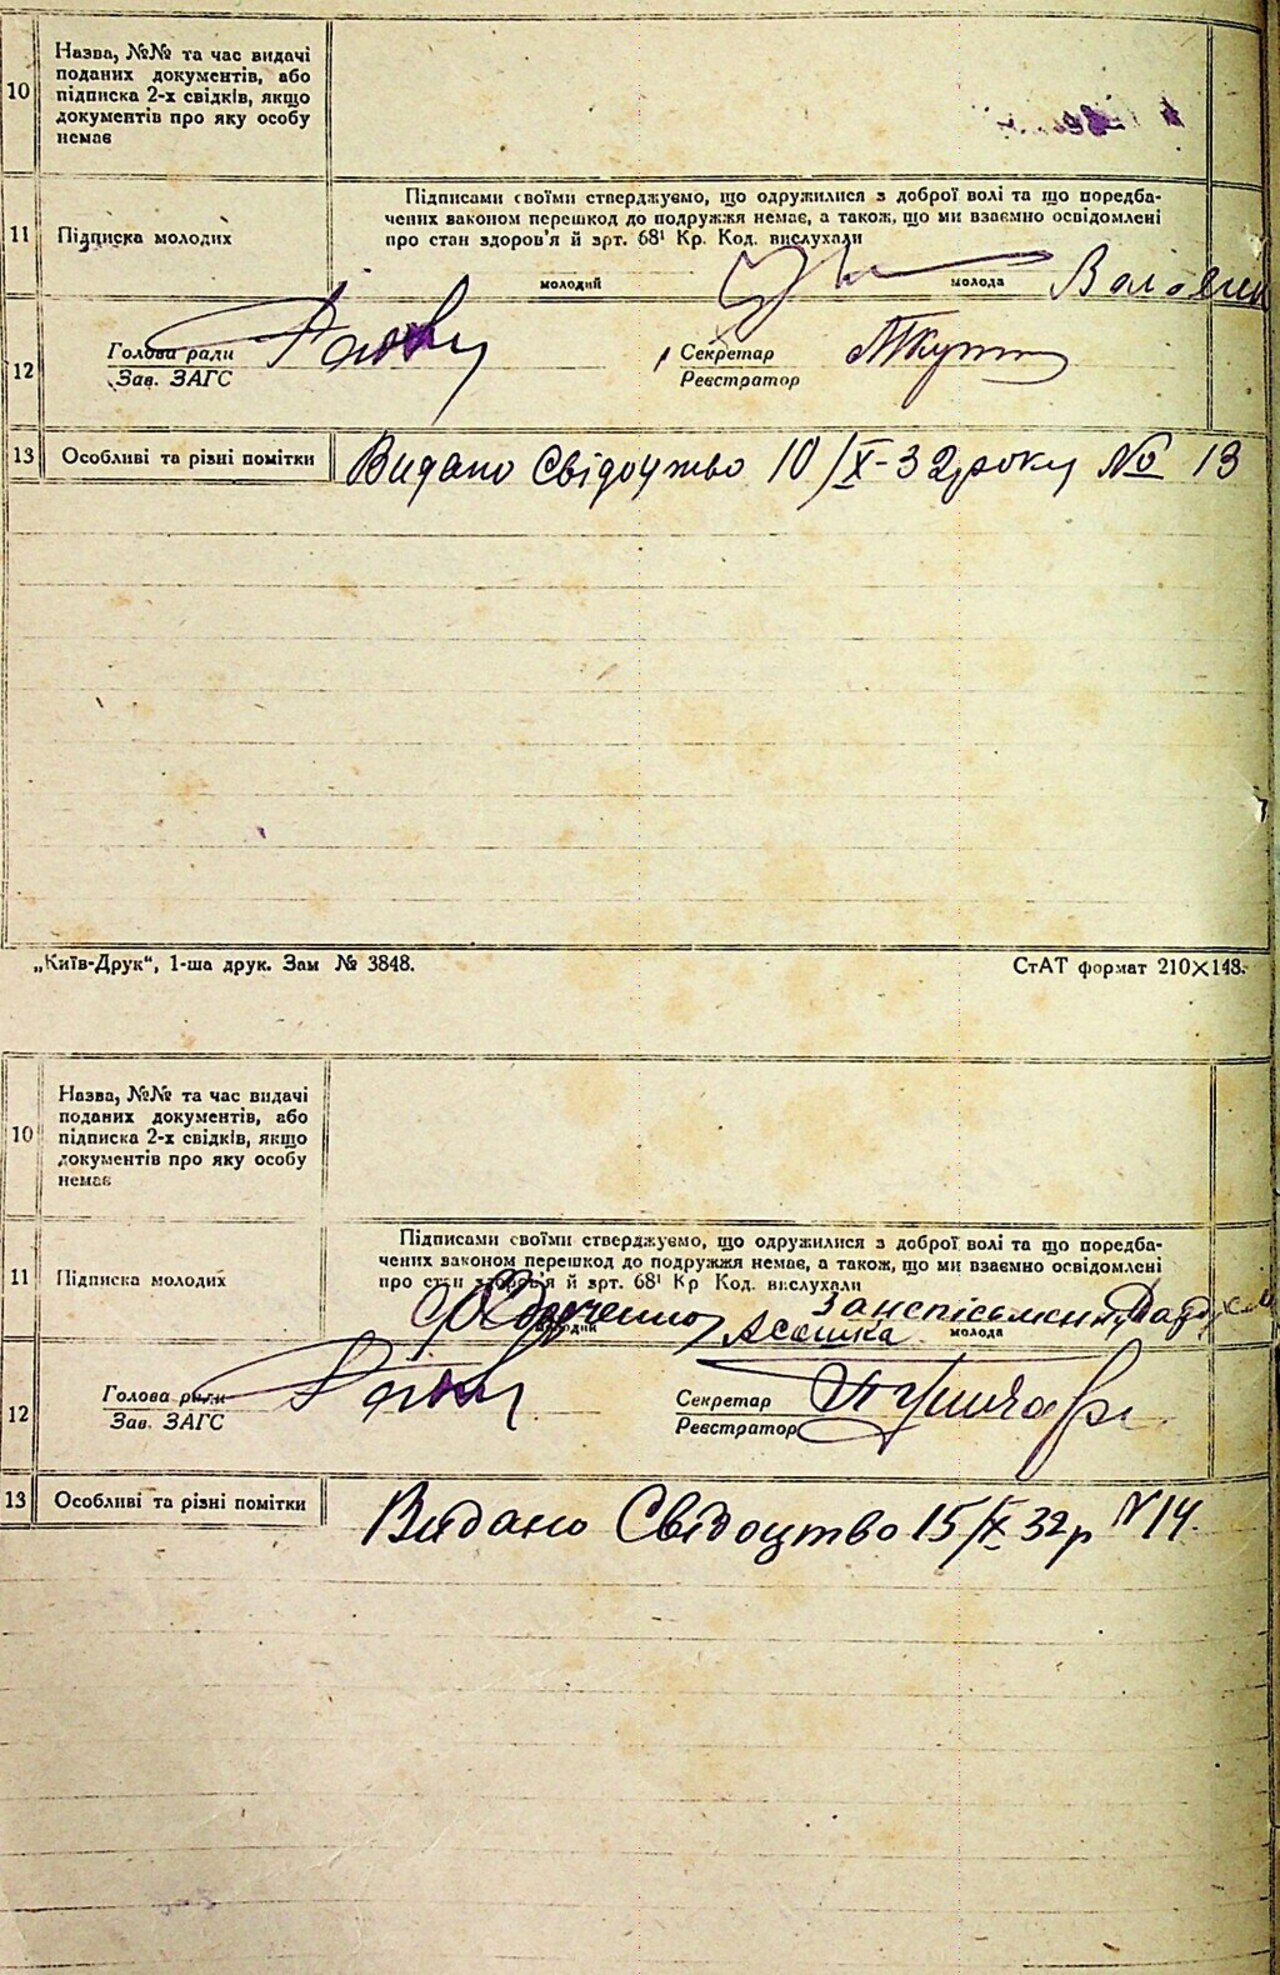 10
Назва, №№ та час видачі
поданих документів, або
підписка 2-х свідків, якщо
документів про яку особу
немає
11
Підписка молодих
Підписами своїми стверджуємо, що одружилися з доброї волі та що поредба-
чених законом перешкод до подружжя немає, а також, що ми взаємно освідомлені
про стан здоров'я й арт. 68¹ Кр. Код. вислухали
молодий
молода
12
Голова ради
Зав. ЗАГС
Секретар
Реєстратор
13
Особливі та різні помітки
Видано Свідоцтво 10/IX-32 року № 13
„Київ-Друк“, 1-ша друк. Зам № 3848.
СтАТ формат 210×148.
10
Назва, №№ та час видачі
поданих документів, або
підписка 2-х свідків, якщо
документів про яку особу
немає
11
Підписка молодих
Підписами своїми стверджуємо, що одружилися з доброї волі та що поредба-
чених законом перешкод до подружжя немає, а також, що ми взаємно освідомлені
про стан здоров'я й арт. 68¹ Кр Код. вислухали
молодий
молода
12
Голова ради
Зав. ЗАГС
Секретар
Реєстратор
13
Особливі та різні помітки
Видано Свідоцтво 15/IX 32р N 14.